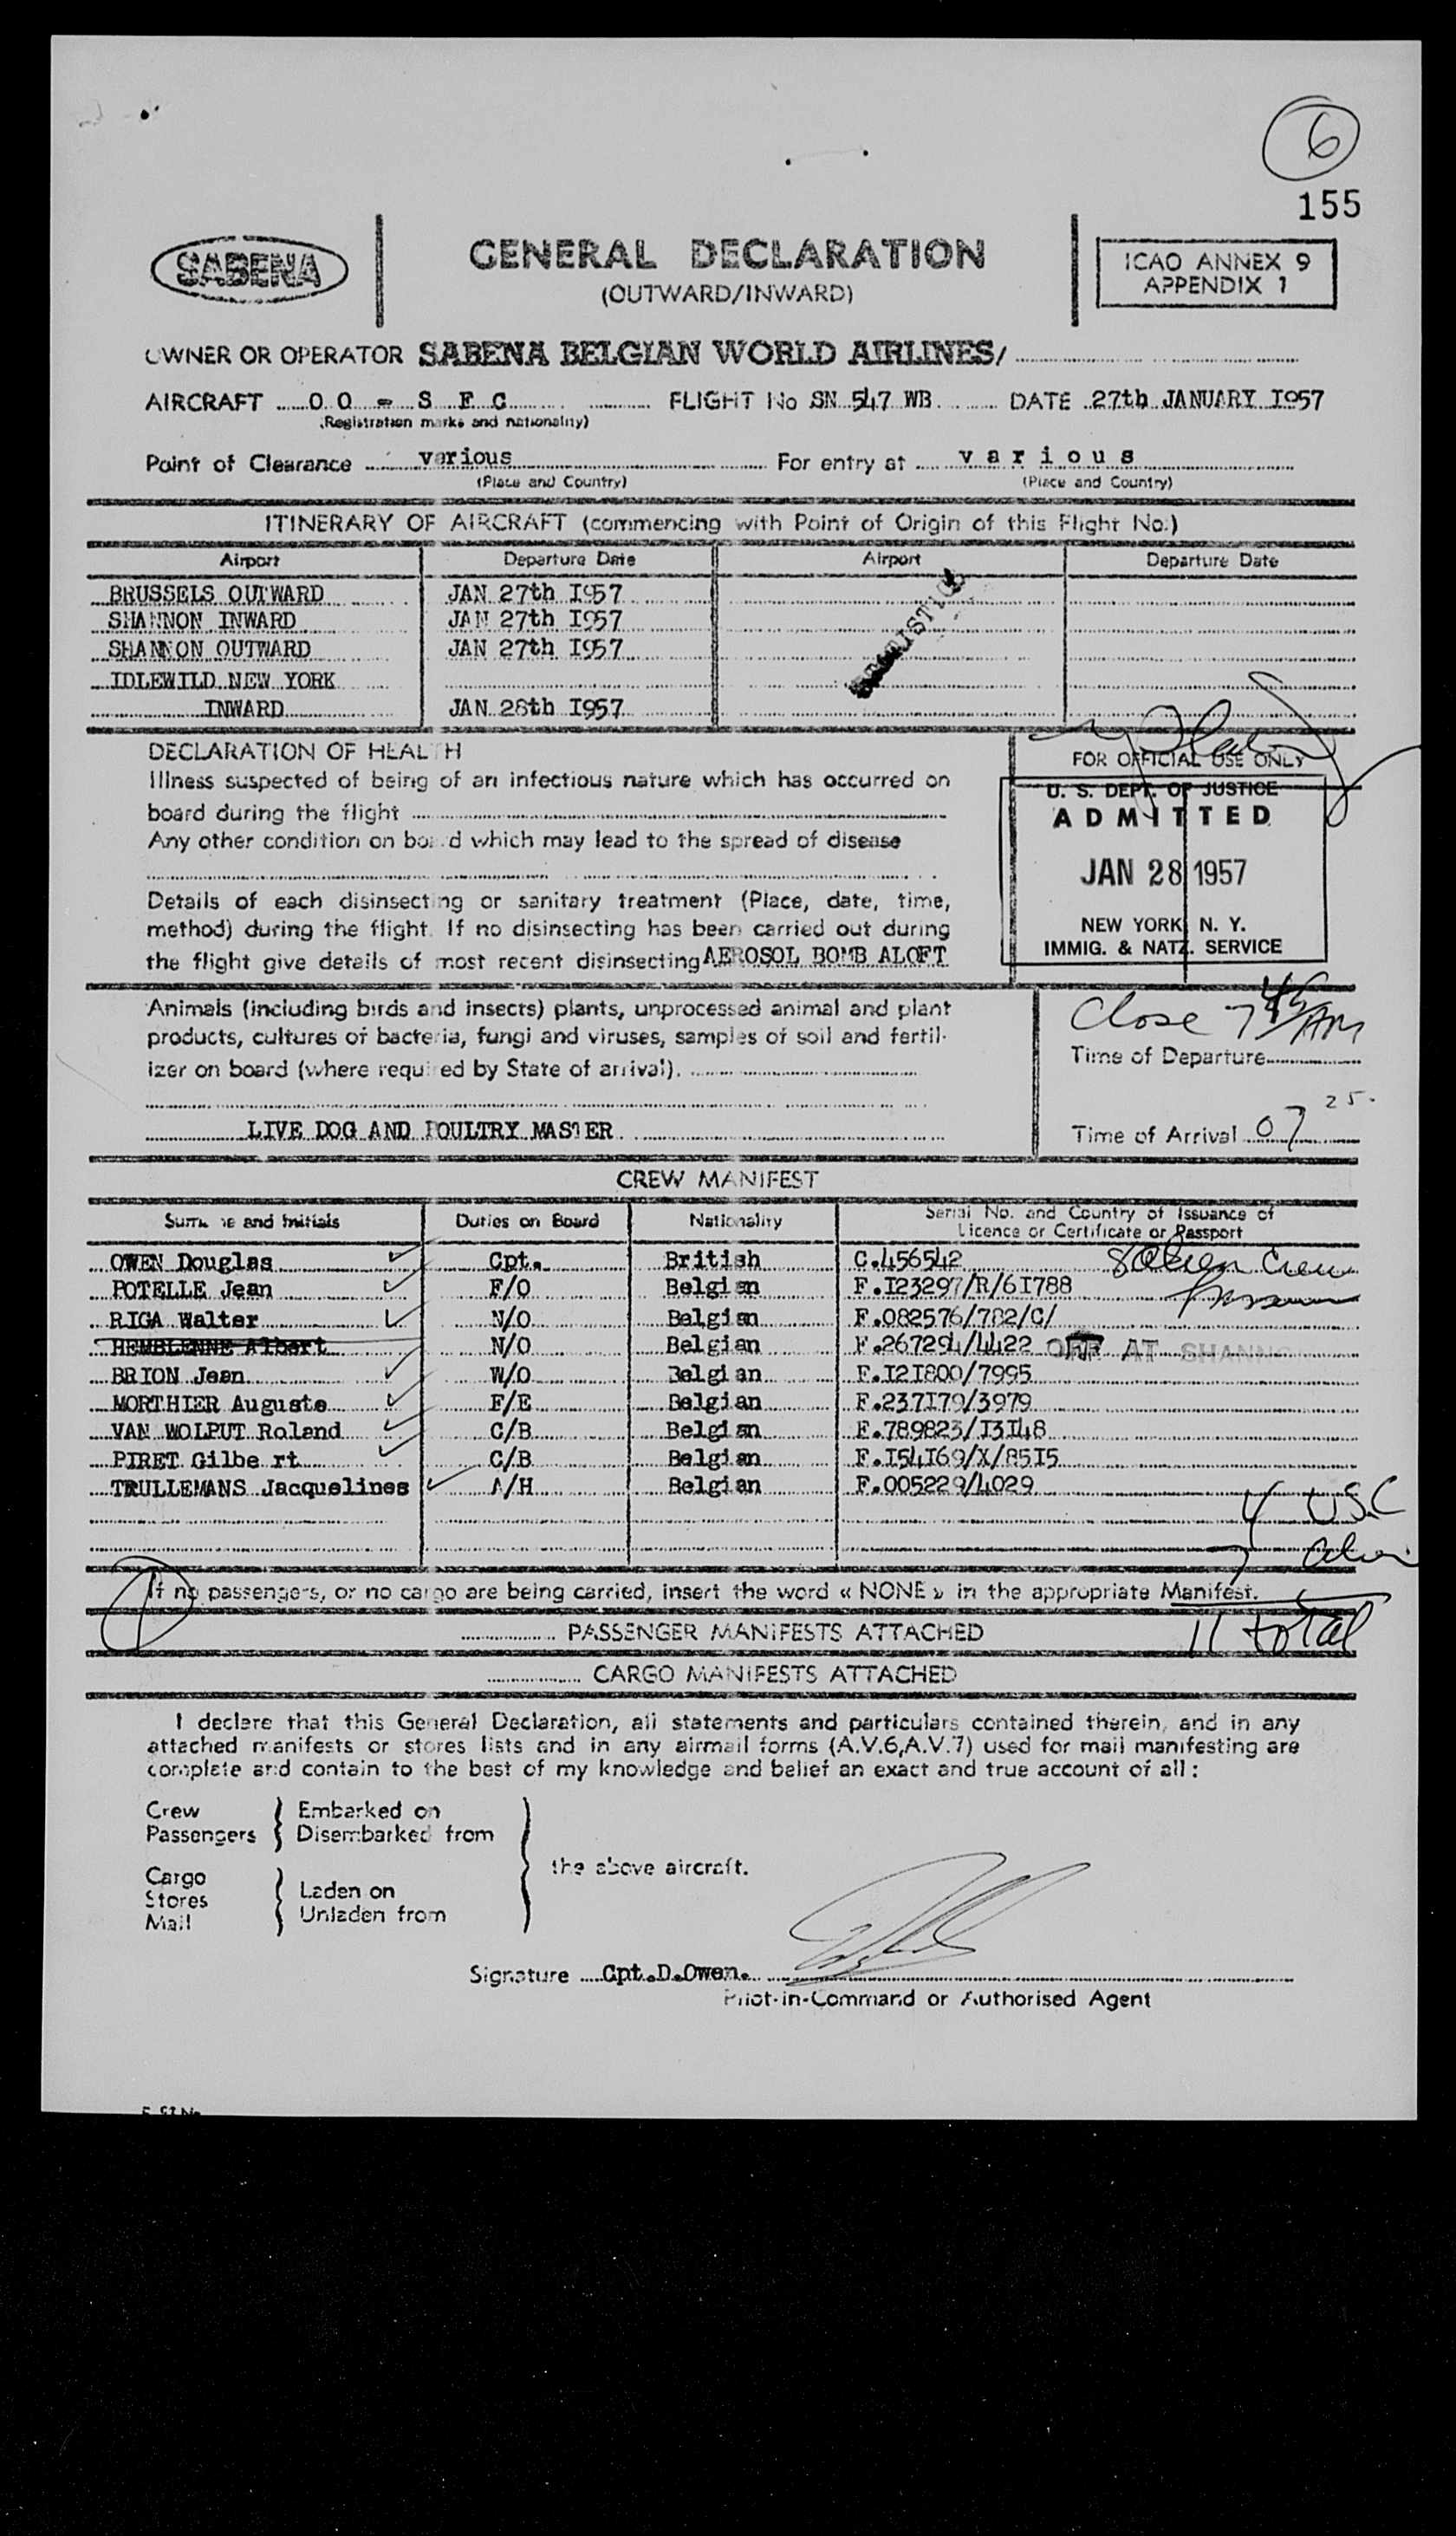 6
155
SABENA
GENERAL DECLARATION
(OUTWARD/INWARD)
ICAO ANNEX 9
APPENDIX 1
OWNER OR OPERATOR SABENA BELGIAN WORLD AIRLINES/
AIRCRAFT OO - S F C FLIGHT No SN 547 WB DATE 27th JANUARY I957
(Registration marks and nationality)
Point of Clearance various For entry at v a r i o u s
(Place and Country) (Place and Country)
ITINERARY OF AIRCRAFT (commencing with Point of Origin of this Flight No.)
Airport Departure Date Airport Departure Date
BRUSSELS OUTWARD JAN 27th I957
SHANNON INWARD JAN 27th I957
SHANNON OUTWARD JAN 27th I957
IDLEWILD NEW YORK
INWARD JAN 28th I957
DECLARATION OF HEALTH
Illness suspected of being of an infectious nature which has occurred on
board during the flight
Any other condition on board which may lead to the spread of disease
Details of each disinsecting or sanitary treatment (Place, date, time,
method) during the flight. If no disinsecting has been carried out during
the flight give details of most recent disinsecting AEROSOL BOMB ALOFT
FOR OFFICIAL USE ONLY
U. S. DEPT. OF JUSTICE
ADMITTED
JAN 28 1957
NEW YORK, N. Y.
IMMIG. & NATZ. SERVICE
Animals (including birds and insects) plants, unprocessed animal and plant
products, cultures of bacteria, fungi and viruses, samples of soil and fertil-
izer on board (where required by State of arrival).
LIVE DOG AND POULTRY MASTER
Close 7 45 AM
Time of Departure
Time of Arrival 07 25
CREW MANIFEST
Surname and Initials Duties on Board Nationality Serial No. and Country of Issuance of
Licence or Certificate or Passport
OWEN Douglas Cpt. British C.456542
POTELLE Jean F/O Belgian F.I23297/R/6I788
RIGA Walter N/O Belgian F.082576/782/C/
HEMBLENNE Albert N/O Belgian F.267294/4422 OFF AT SHANNON
BRION Jean W/O Belgian F.I2I800/7995
MORTHIER Auguste F/E Belgian F.237I79/3979
VAN WOLPUT Roland C/B Belgian F.789823/I3I48
PIRET Gilbe rt C/B Belgian F.I54I69/X/85I5
TRULLEMANS Jacquelines A/H Belgian F.005229/4029
4 USC
7
If no passengers, or no cargo are being carried, insert the word « NONE » in the appropriate Manifest.
PASSENGER MANIFESTS ATTACHED
11 total
CARGO MANIFESTS ATTACHED
I declare that this General Declaration, all statements and particulars contained therein, and in any
attached manifests or stores lists and in any airmail forms (A.V.6,A.V.7) used for mail manifesting are
complete and contain to the best of my knowledge and belief an exact and true account of all :
Crew Embarked on
Passengers Disembarked from
the above aircraft.
Cargo
Stores Laden on
Mail Unladen from
Signature Cpt.D.Owen.
Pilot-in-Command or Authorised Agent